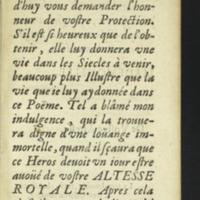 d'huy vous demander l'hon-
neur de vostre Protection.
S'il est si heureux que de l'ob-
tenir, elle luy donnera vne
vie dans les Siecles à venir,
beaucoup plus Illustre que la
vie que ie luy ay donnée dans
ce Poëme. Tel a blâmé mon
indulgence, qui la trouue-
ra digne d'vne loüange im-
mortelle, quand il sçaura que
ce Heros deuoit vn iour estre
auoüé de vostre ALTESSE
ROYALE. Apres cela